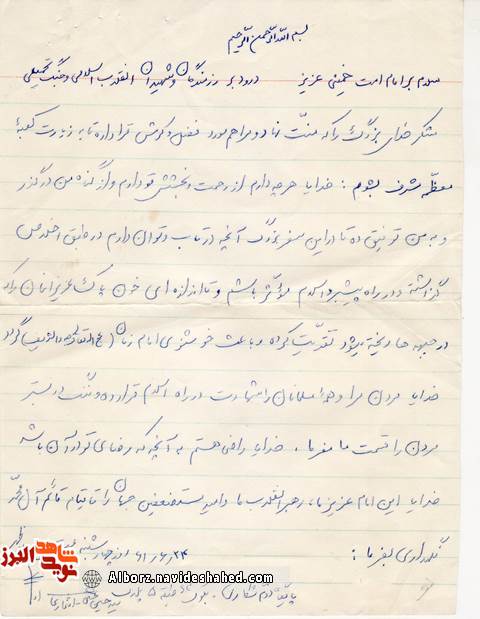 بسم الله الرحمن الرحیم
سلام بر امام امت خمینی عزیز درود بر رزمندگان و شهیدان انقلاب اسلامی و جنگ تحمیلی
شکر خدای بزرگ را که منّت نهاد و مرا هم مورد فضل و کرمش قرار داده تا به زیارت کعبهٔ
معظّمه مشرف بشوم: خدایا هرچه دارم از رحمت و بخشش تو دارم و از گناه من درگذر
و به من توفیق ده تا در این سفر بزرگ آنچه در تاب و توان دارم در طبق اخلاص
گذاشته و در راه پیشبرد اسلام مؤثر باشم و تا اندازه ای خون پاک عزیزانمان را که
در جبهه ها ریخته میشود تقویت کرده و باعث خوشنودی امام زمان (عج) گردد
خدایا مردن مرا و همهٔ مسلمانان را شهادت در راه اسلام قرار ده و ننگ در بستر
مردن را قسمت ما مفرما. خدایا راضی هستم به آنچه که رضای تو در آن باشد
خدایا این امام عزیز ما، رهبر انقلاب ما و امید مستضعفین جهان را تا قیام قائم آل محمد
نگهداری بفرما:
۶۱/۶/۲۴ روز چهارشنبه
شاهد
نوید
البرز
Alborz.navideshahed.com